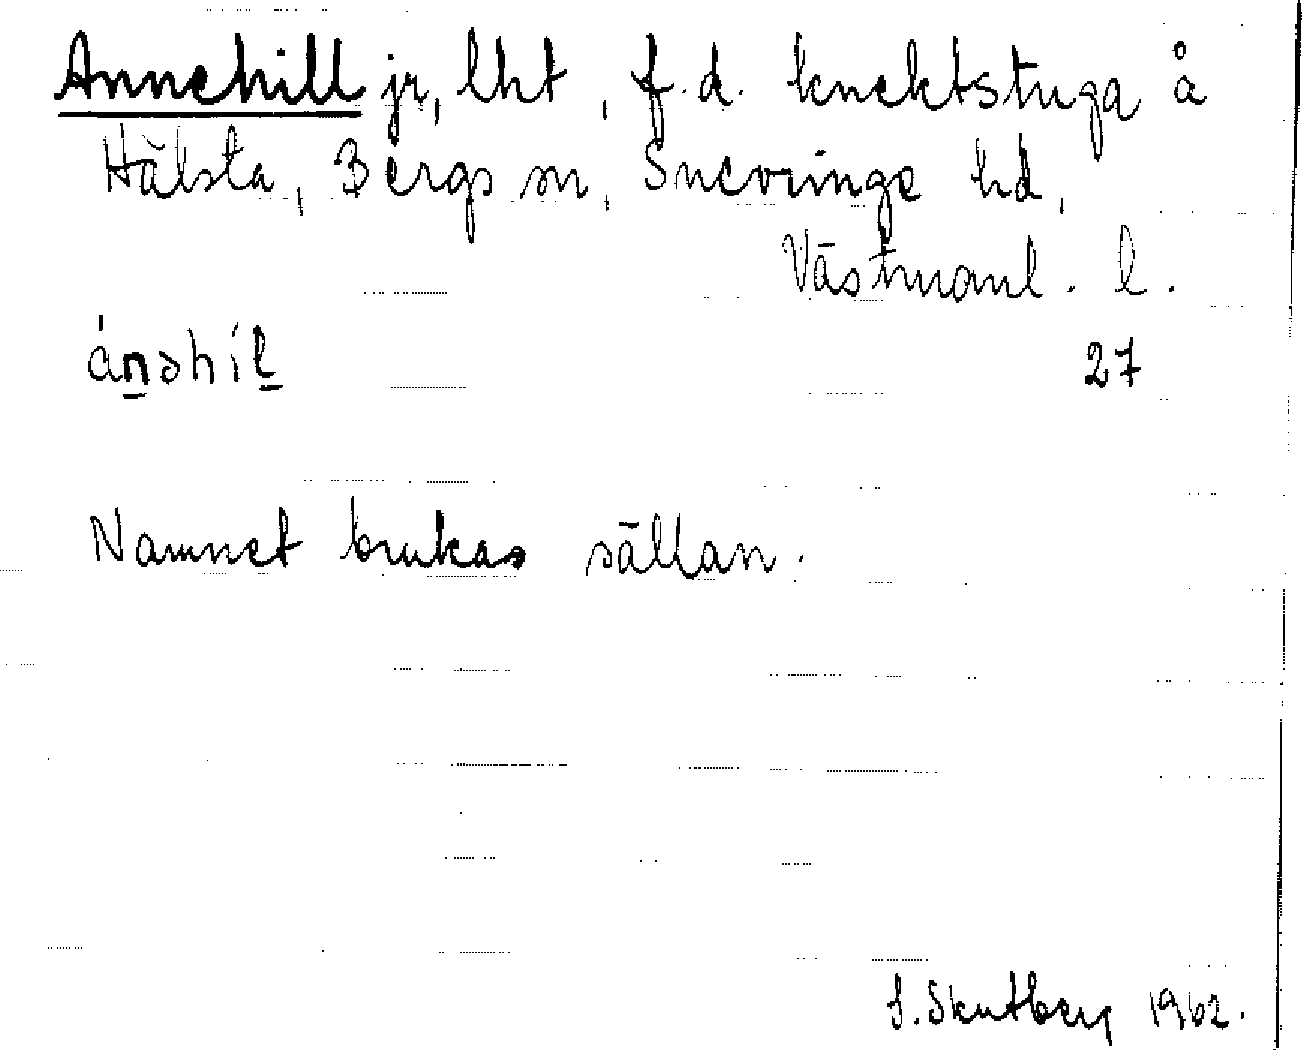 Annehill jr, lht, f.d. knektstuga å
Hälsta, Bergs sn, Snevringe hd,
Västmanl. l.
ánəhíl 27
Namnet brukas sällan.
S. Skutberg 1962.